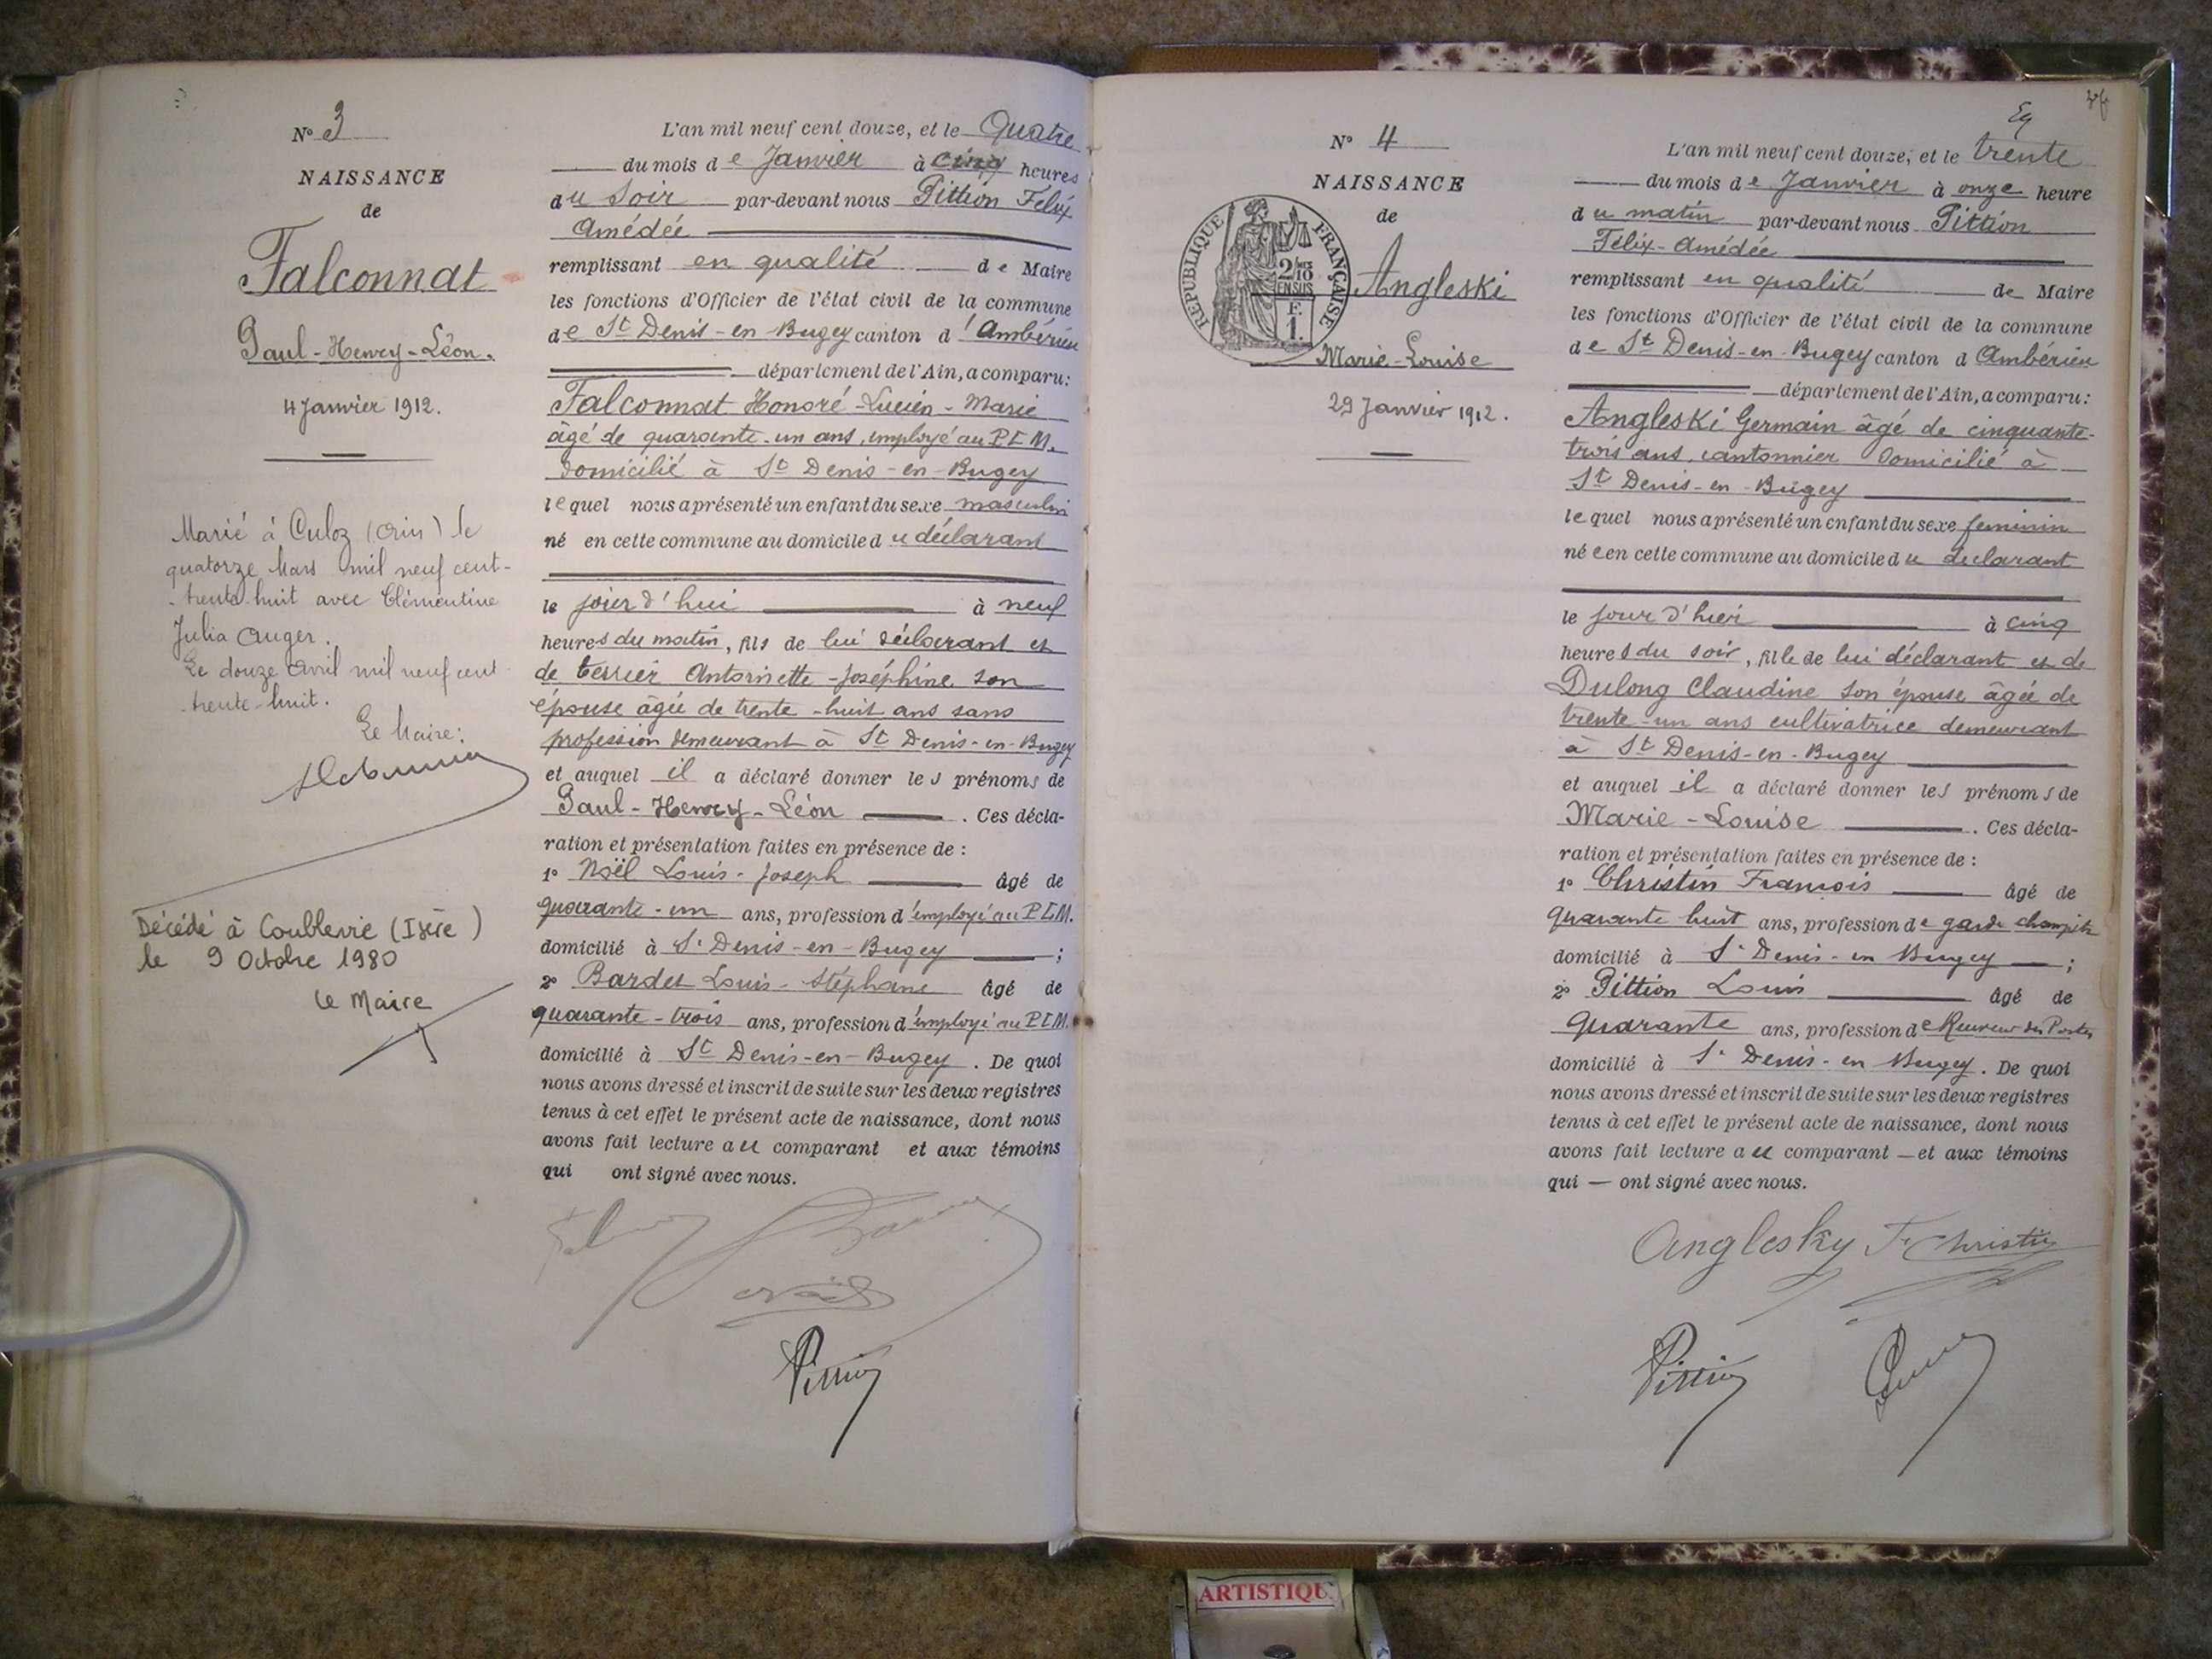 N° 3
NAISSANCE
de
Falconnat
Paul-Henry-Léon.
4 Janvier 1912.
Marié à Culoz (Ain) le
quatorze Mars mil neuf cent-
-trente huit avec Clémentine
Julia Auger.
Le douze Avril mil neuf cent
-trente-huit.
Le Maire:
Décédé à Coublevie (Isère)
le 9 Octobre 1980
Le Maire
L'an mil neuf cent douze, et le Quatre
du mois de Janvier à cinq heures
du Soir par-devant nous Pittion Félix
Amédée
remplissant en qualité de Maire
les fonctions d'Officier de l'état civil de la commune
de St Denis-en-Bugey canton d'Ambérieu
département de l'Ain, a comparu:
Falconnat Honoré-Lucien-Marie
âgé de quarante-un ans, employé au P.L.M.
domicilié à St Denis-en-Bugey
lequel nous a présenté un enfant du sexe masculin
né en cette commune au domicile du déclarant
le jour d'hui à neuf
heures du matin, fils de lui déclarant et
de Terrier Antoinette-Joséphine son
épouse âgée de trente-huit ans sans
profession demeurant à St Denis-en-Bugey
et auquel il a déclaré donner les prénoms de
Paul-Henry-Léon. Ces décla-
ration et présentation faites en présence de :
1° Noël Louis-Joseph âgé de
quarante-un ans, profession d'employé au P.L.M.
domicilié à St Denis-en-Bugey ;
2° Bardet Louis-Stéphane âgé de
quarante-trois ans, profession d'employé au P.L.M.
domicilié à St Denis-en-Bugey. De quoi
nous avons dressé et inscrit de suite sur les deux registres
tenus à cet effet le présent acte de naissance, dont nous
avons fait lecture au comparant et aux témoins
qui ont signé avec nous.
Noël
Pittion
N° 4
NAISSANCE
de
RÉPUBLIQUE FRANÇAISE
2/10
EN SUS
F.
1.
Angleski
Marie-Louise
29 Janvier 1912.
L'an mil neuf cent douze, et le trente
du mois de Janvier à onze heure
du matin par-devant nous Pittion
Félix-Amédée
remplissant en qualité de Maire
les fonctions d'Officier de l'état civil de la commune
de St Denis-en-Bugey canton d Ambérieu
département de l'Ain, a comparu:
Angleski Germain âgé de cinquante-
trois ans, cantonnier domicilié à
St Denis-en-Bugey
lequel nous a présenté un enfant du sexe feminin
née en cette commune au domicile du déclarant
le jour d'hier à cinq
heures du soir, fille de lui déclarant et de
Dulong Claudine son épouse âgée de
trente-un ans cultivatrice demeurant
à St Denis-en-Bugey
et auquel il a déclaré donner les prénoms de
Marie-Louise. Ces décla-
ration et présentation faites en présence de :
1° Christin François âgé de
quarante huit ans, profession de garde champêtre
domicilié à St Denis-en Bugey ;
2° Pittion Louis âgé de
Quarante ans, profession de Receveur des Postes
domicilié à St Denis-en Bugey. De quoi
nous avons dressé et inscrit de suite sur les deux registres
tenus à cet effet le présent acte de naissance, dont nous
avons fait lecture au comparant — et aux témoins
qui — ont signé avec nous.
Anglesky F. Christin
Pittion
ARTISTIQU